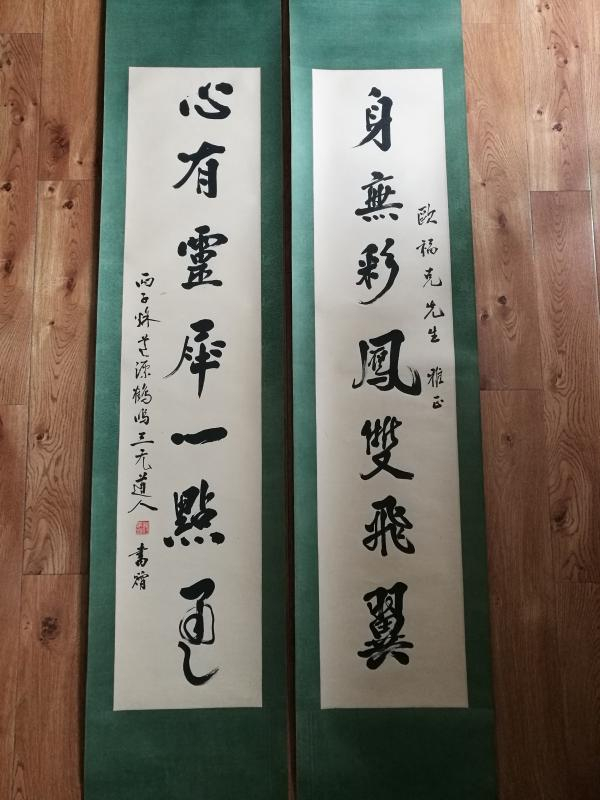 身無彩鳳雙飛翼
歐福克先生 雅正
心有靈犀一點通
丙子秋 源鶴鳴三元道人 書贈